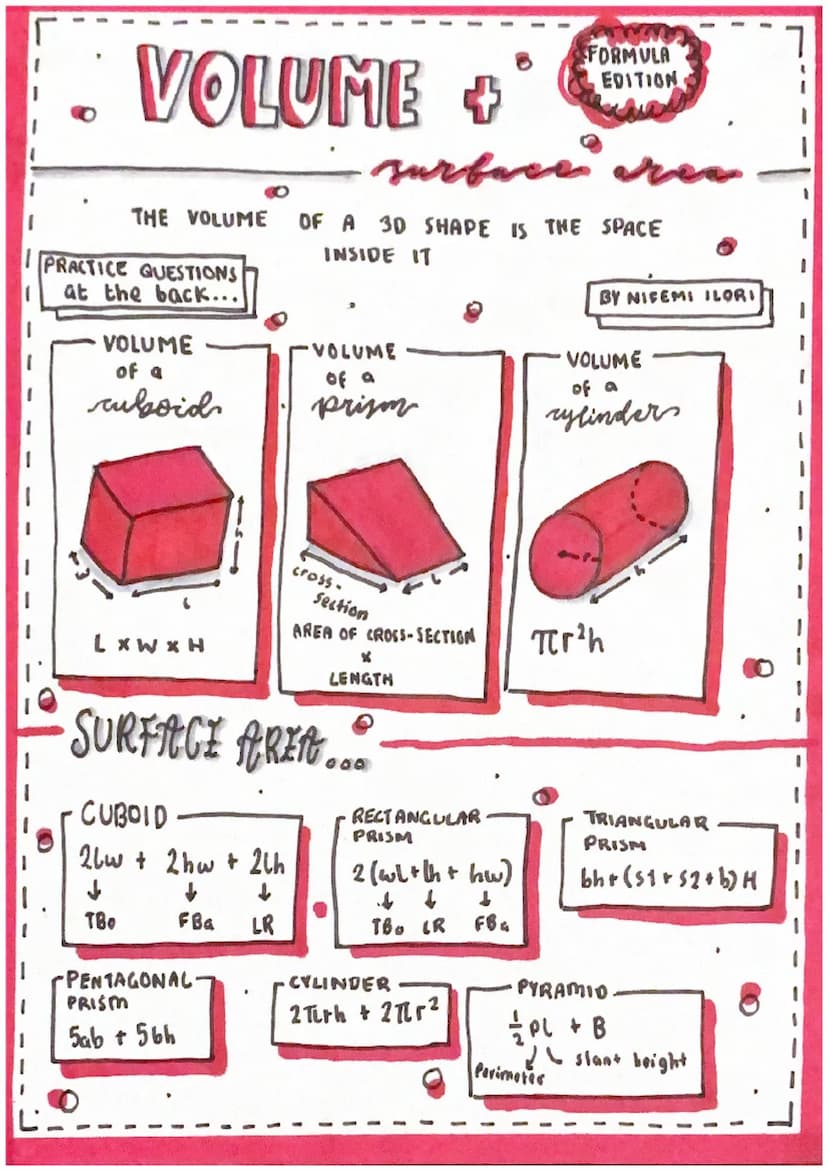 VOLUME +
FORMULA
EDITION
surface area
THE VOLUME OF A 3D SHAPE IS THE SPACE
INSIDE IT
PRACTICE QUESTIONS
at the back...
BY NIFEMI ILORI
VOLUME
OF a
cuboid
h
w
L
L x W x H
VOLUME
of a
prism
cross-
section
L
AREA OF CROSS-SECTION
x
LENGTH
VOLUME
of a
cylinder
r
h
πr²h
SURFACE AREA...
CUBOID
2lw + 2hw + 2lh
TBo FBa LR
RECTANGULAR
PRISM
2(wl+lh+ hw)
TBo LR FBa
TRIANGULAR
PRISM
bh+(s1+s2+b)H
PENTAGONAL
PRISM
5ab + 5bh
CYLINDER
2πrh + 2πr²
PYRAMID
½pl + B
Perimeter slant height